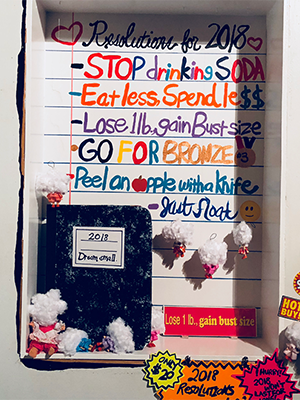 Resolutions for 2018
-STOP drinking SODA
-Eat less, Spend le$$
-Lose 1lb., gain Bust size
·GO FOR BRONZE #3
·Peel an apple with a Knife
-Just float
2018
Dream small
Lose 1 lb., gain bust size
HOT
BUY!
ONLY
$20
2018
RESOLUTIONS